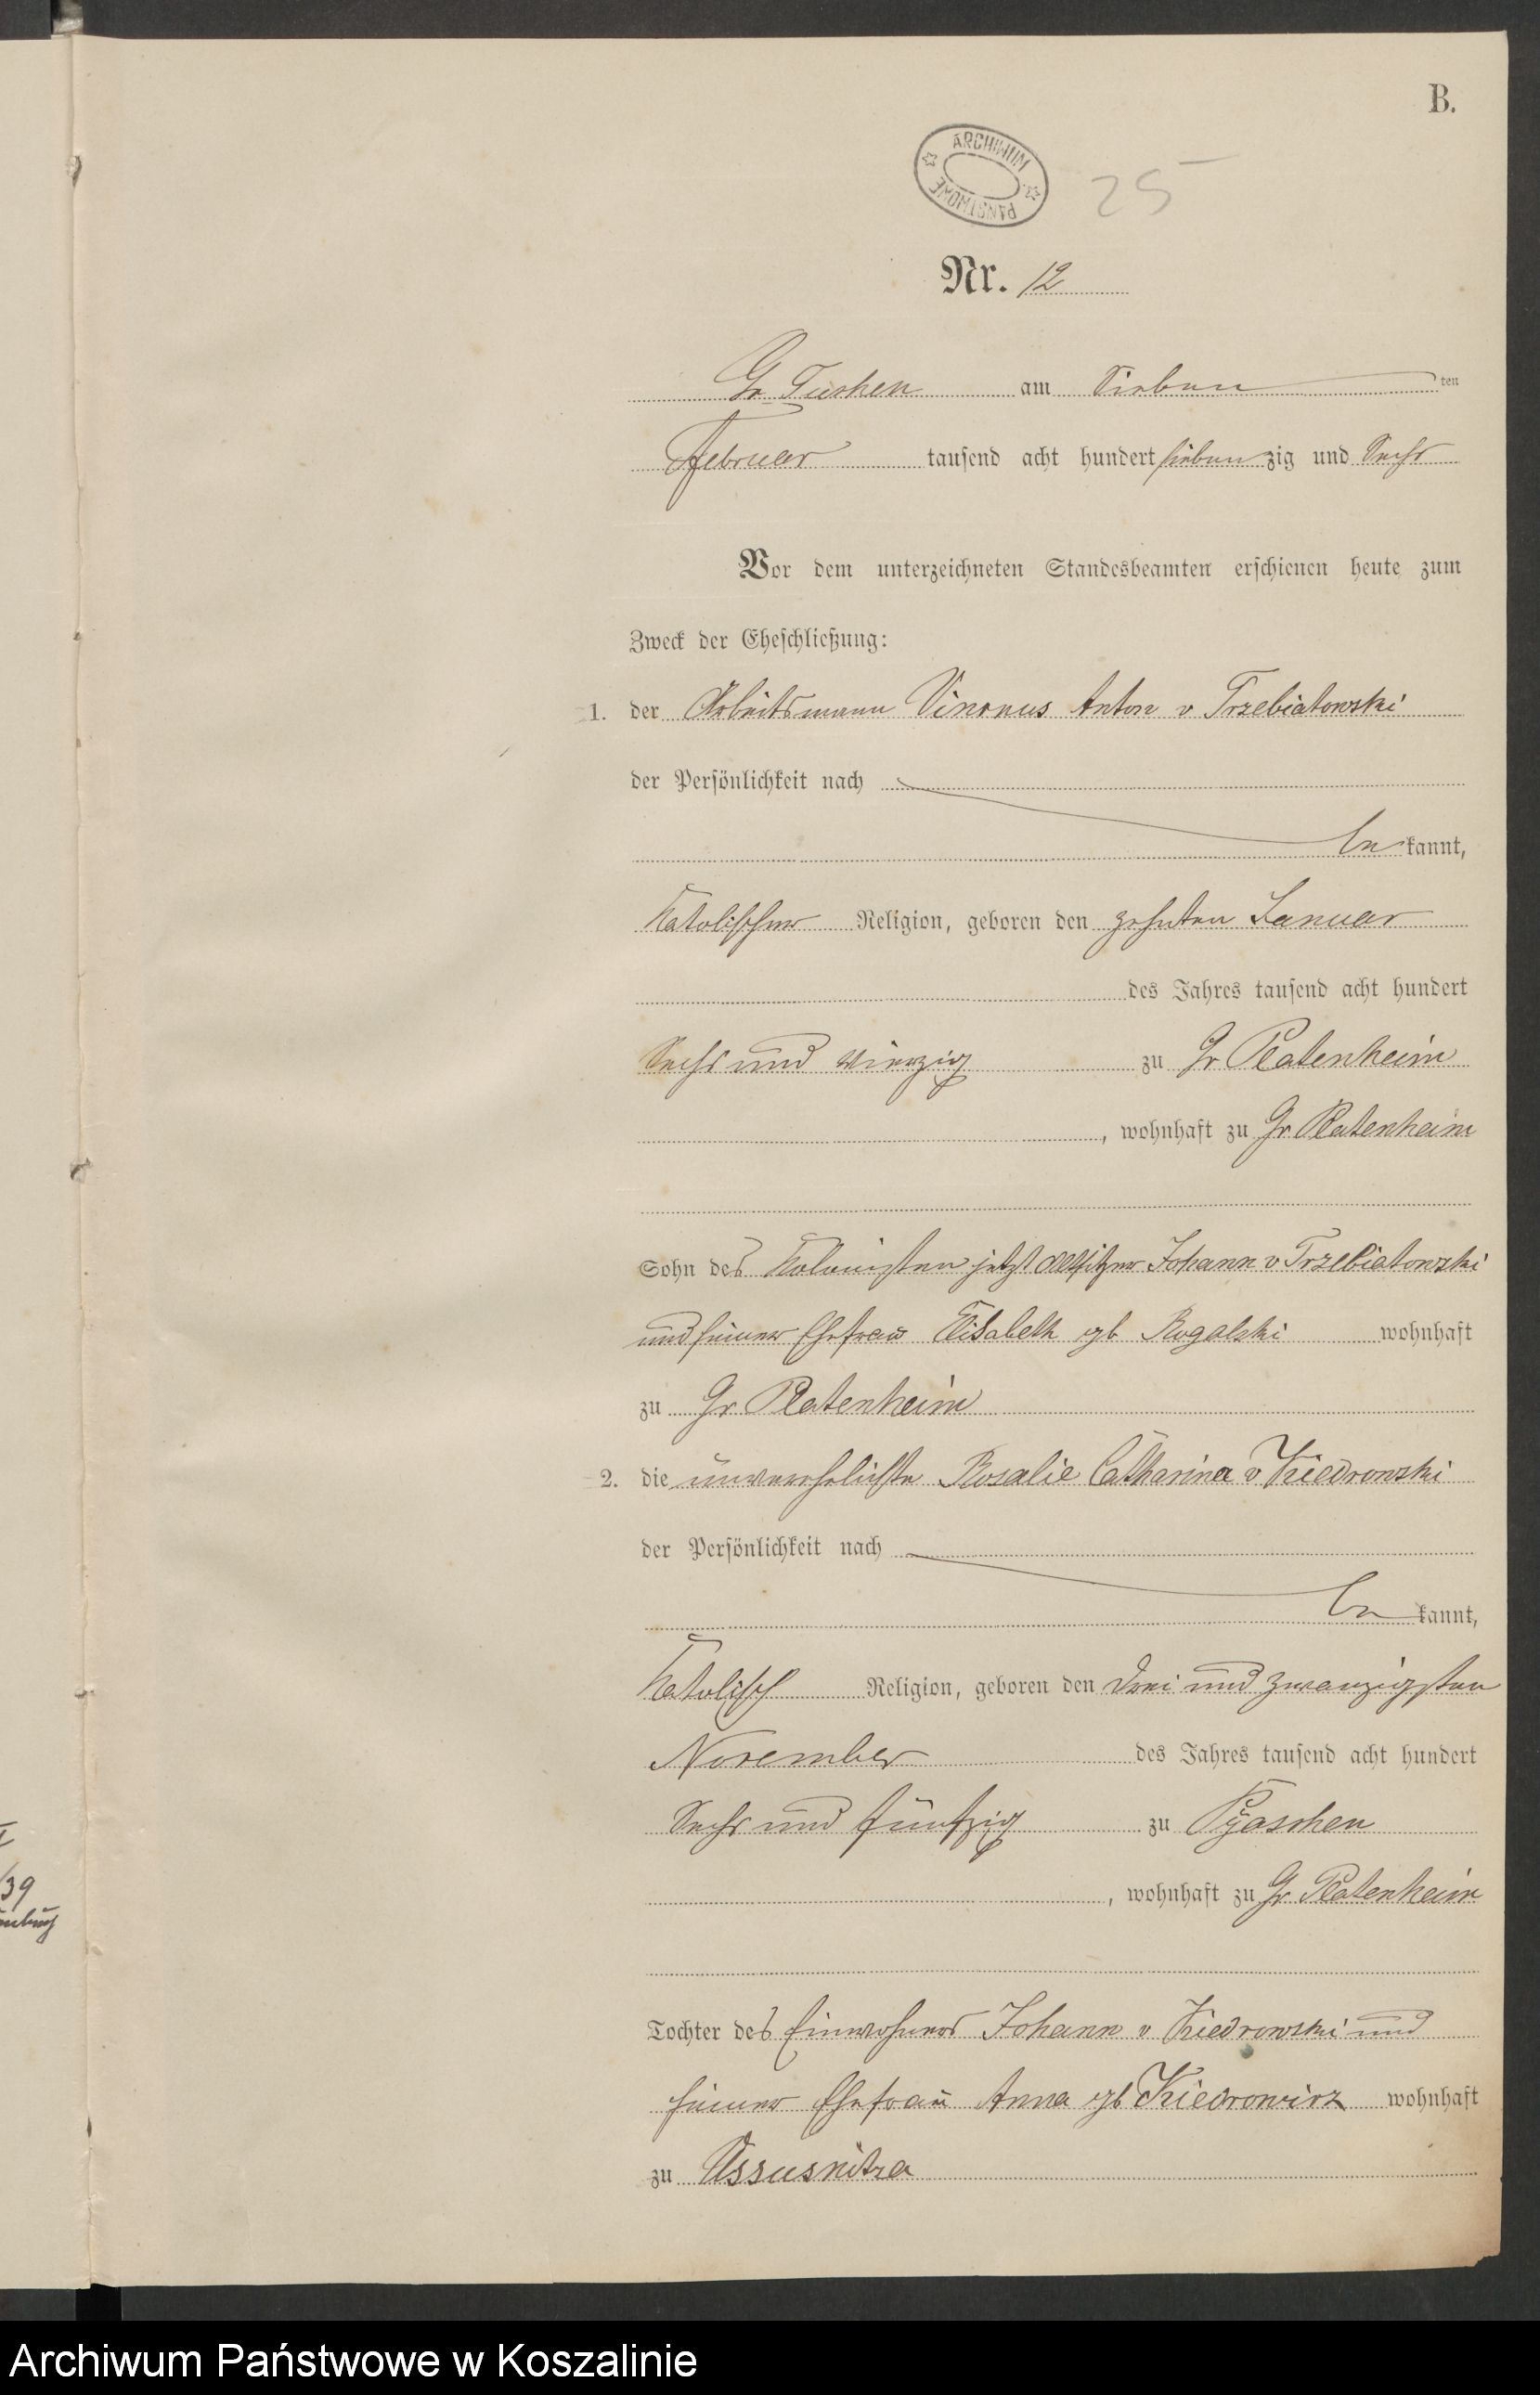 B.
ARCHIWUM PAŃSTWOWE
25
Nr. 12
Gr Tuchen am Sieben ten
Februar tausend acht hundert sieben zig und Sechs
Vor dem unterzeichneten Standesbeamten erschienen heute zum
Zweck der Eheschließung:
1. der Arbeitsmann Anton v Trzebiatowski
der Persönlichkeit nach
kannt,
Katolischer Religion, geboren den zehnten Januar
des Jahres tausend acht hundert
Sechs und vierzig zu Gr Platenheim
, wohnhaft zu Gr. Platenheim
Sohn des Kolonisten jetzt Altsitzer Johann v Trzebiatowski
und seiner Ehefrau Elisabeth gb Rogalski wohnhaft
zu Gr. Platenheim
2. die unverehelichte Rosalie Catharina v Kiedrowski
der Persönlichkeit nach
kannt,
Katolisch Religion, geboren den drei und zwanzigsten
November des Jahres tausend acht hundert
Sechs und fünfzig zu Pyaschen
, wohnhaft zu Gr. Platenheim
Tochter des Einwohners Johann v Kiedrowski und
seiner Ehefrau Anna gb wohnhaft
zu
39
Archiwum Państwowe w Koszalinie